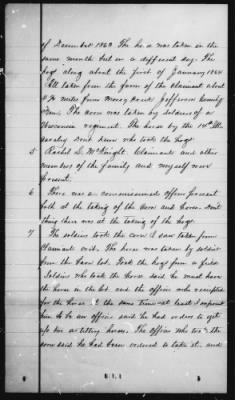 of December 1863 The horse was taken in the
same month but on a different day. The
hogs along about the first of January 1864
All taken from the farm of the claimant
miles from Mossy Creek Jefferson County
Tenn. The corn was taken by soldiers of a
Wisconsin regiment. The horse by the 1st
Cavalry Dont know who took the hogs
5 Rachel S. McKnight, Claimant and other
members of the family and myself were
present.
6 There was a commissioned officer present
both at the taking of the corn and horse. Dont
think there was at the taking of the hogs
7 The soldiers took the corn I saw taken from
Claimants crib. The horse was taken by soldier
from the barn lot. Took the hogs from a field
Soldier who took the horse said he must have
the horse in the lot and the officer who receipted
for the horse at the same time at least I supposed
him to be an officer said he had orders to get
up the artillery horses. The officer who took the
corn said he had been ordered to take it, and